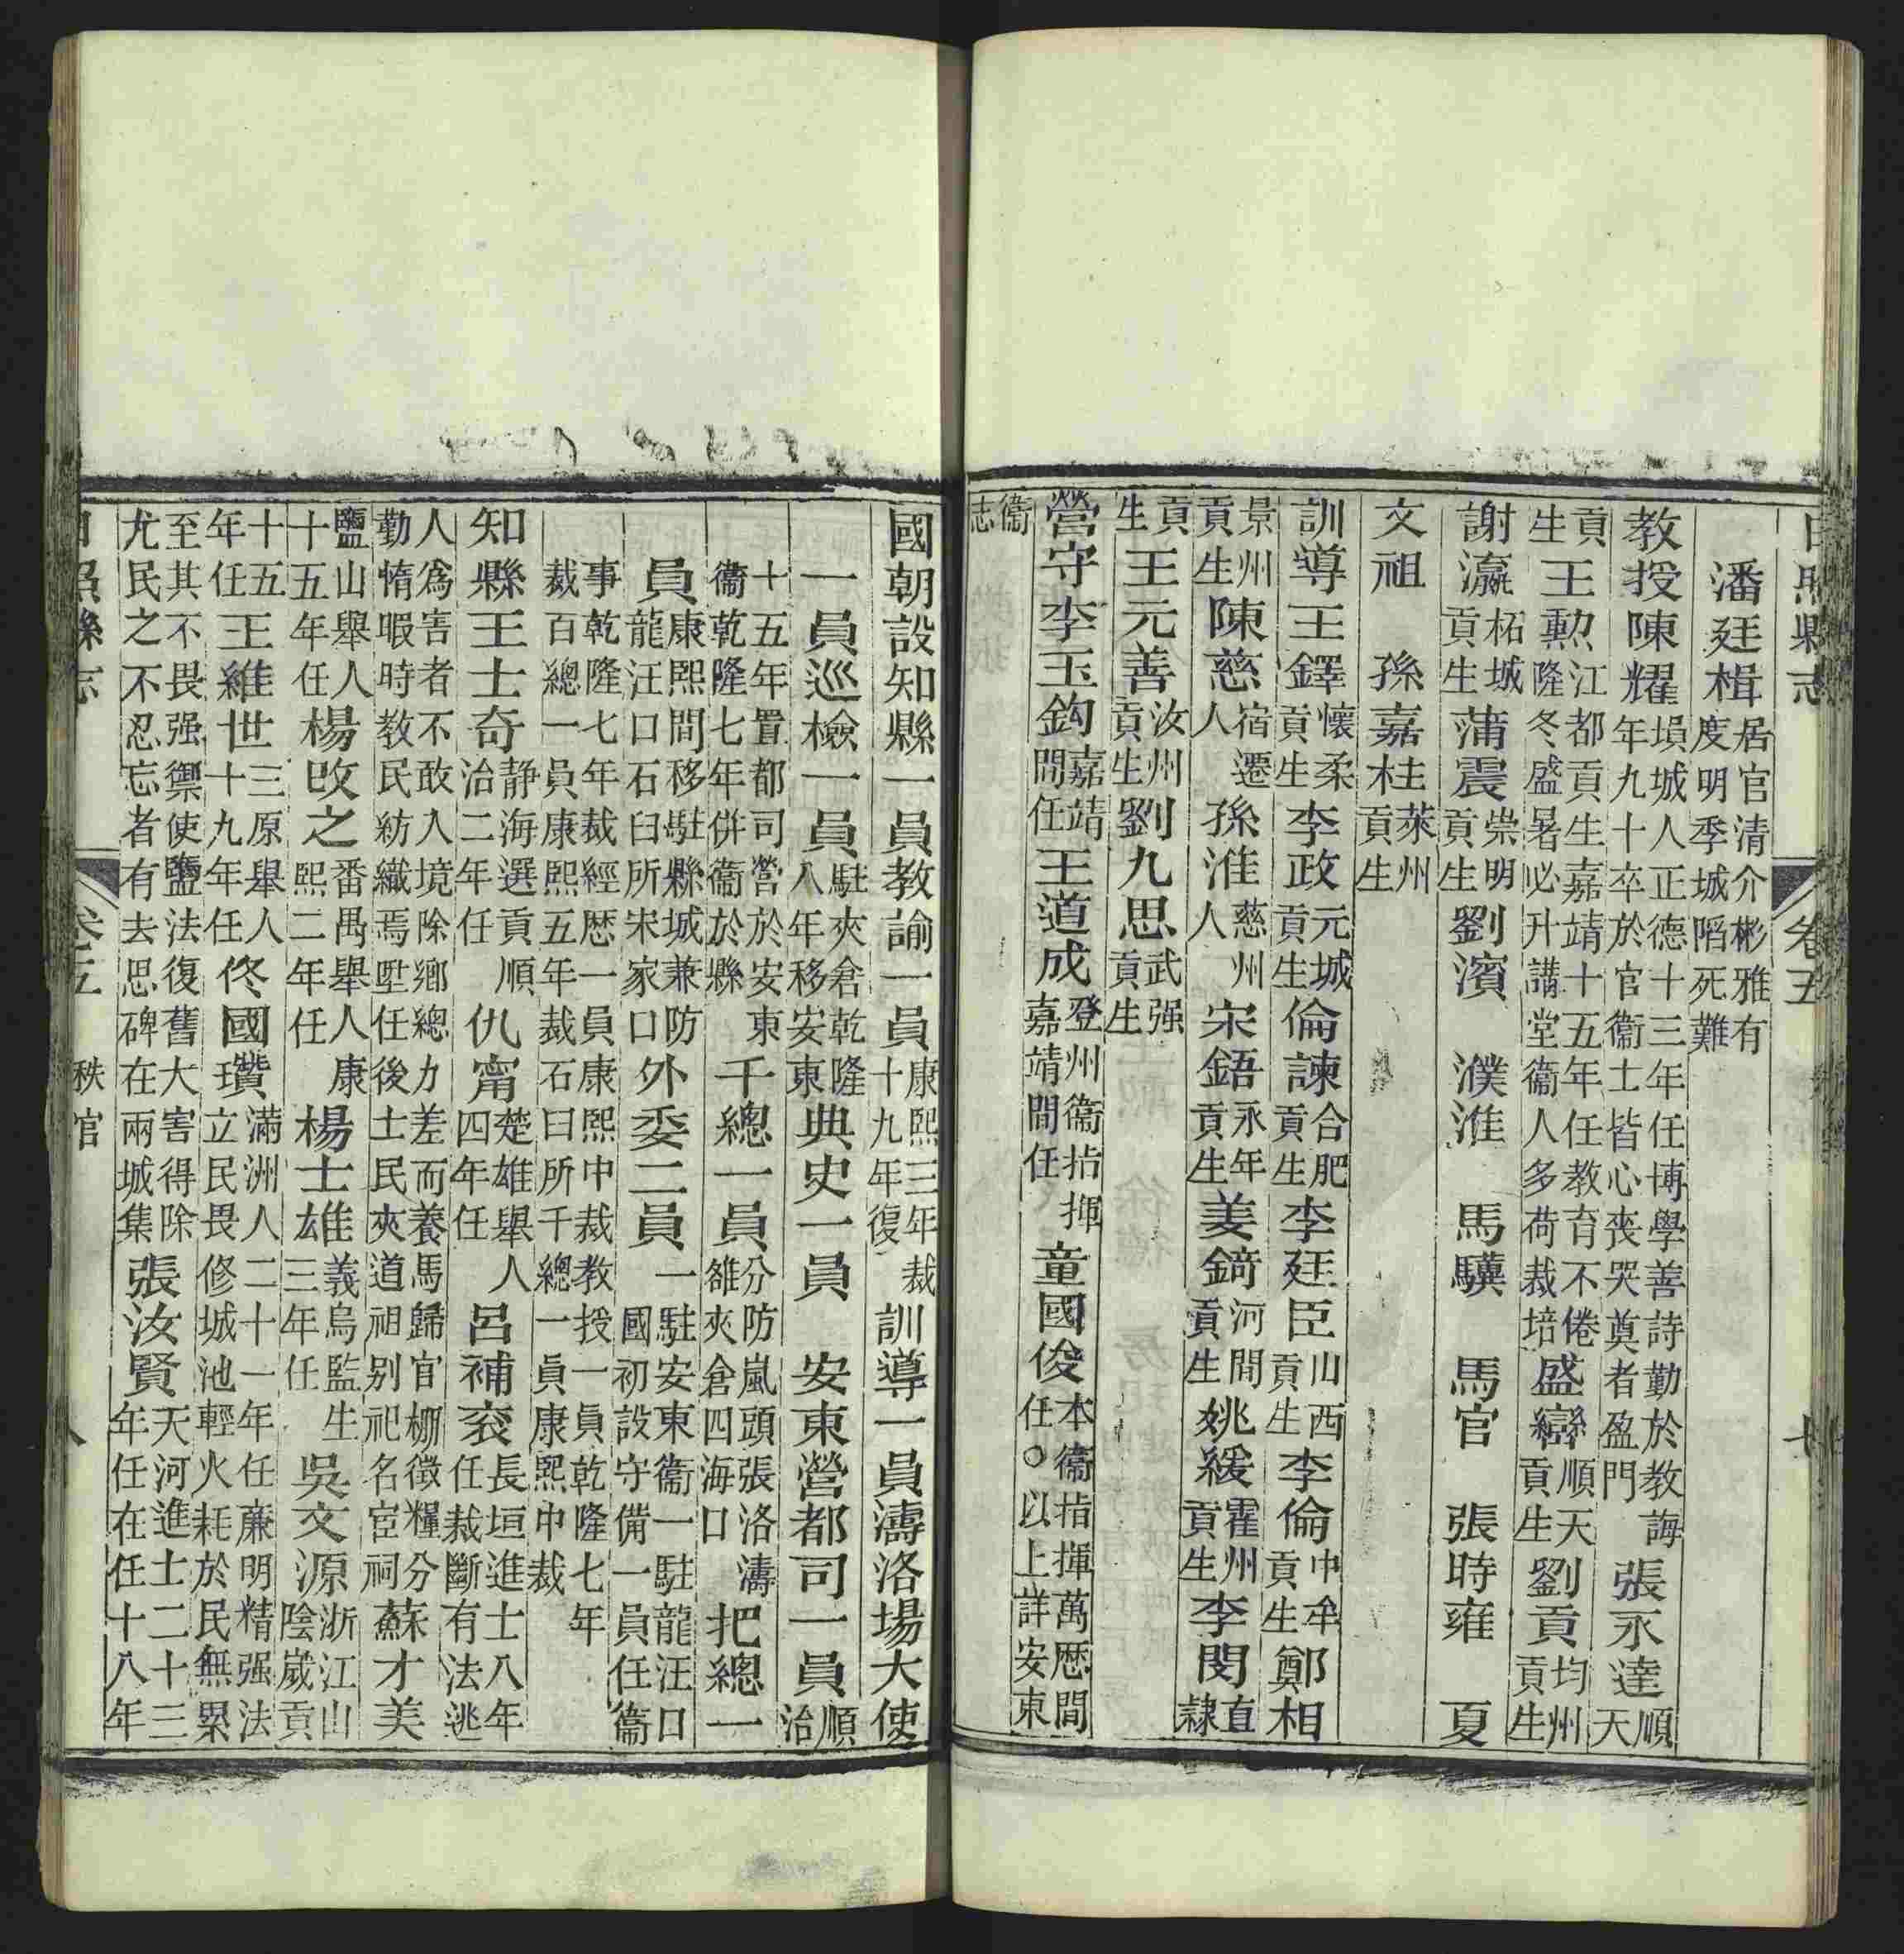 日照縣志 卷五
潘廷楫居官清介彬雅有度明季城陷死難
教授陳耀塤城人正德十三年任博學善詩勤於教誨年九十卒於官衞士皆心喪哭奠者盈門張永達順天
貢生王勲江都貢生嘉靖十五年任教育不倦隆冬盛暑必升講堂衞人多荷栽培盛巒順天貢生劉貢均州貢生
謝瀛柘城貢生蒲震崇明貢生劉濱 濮淮 馬驥 馬官 張時雍 夏
文祖 孫嘉柱萊州貢生
訓導王鐸懷柔貢生李政元城貢生倫諫合肥貢生李廷臣山西貢生李倫中牟貢生鄭相
景州貢生陳慈宿遷人孫淮慈州人宋鋙永年貢生姜錡河間貢生姚緩霍州貢生李閔直隸
貢生王元善汝州貢生劉九思武强貢生
營守李玉鈎嘉靖間任王道成登州衞指揮嘉靖間任童國俊本衞指揮萬厯間任○以上詳安東
衞志
國朝設知縣一員教諭一員康熙三年裁十九年復訓導一員濤洛場大使
一員巡檢一員駐夾倉乾隆八年移安東典史一員 安東營都司一員順治
十五年置都司營於安東衞乾隆七年併衞於縣千總一員分防嵐頭張洛濤雒夾倉四海口把總一
員康熙間移駐縣城兼防龍汪口石臼所宋家口外委二員一駐安東衞一駐龍汪口國初設守備一員任衞
事乾隆七年裁經厯一員康熙中裁教授一員乾隆七年裁百總一員康熙五年裁石臼所千總一員康熙中裁
知縣王士奇静海選貢順治二年任仇甯楚雄舉人四年任呂補衮長垣進士八年任裁斷有法逃
人爲害者不敢入境除鄉總力差而養馬歸官棚徵糧分勤惰暇時教民紡織焉陞任後士民夾道祖别祀名宦祠蘇才美
鹽山舉人十五年任楊攺之番禺舉人康熙二年任楊士雄義烏監生三年任吳文源浙江山陰歲貢
十五年任王維世三原舉人十九年任佟國瓚滿洲人二十一年任廉明精强法立民畏修城池輕火耗於民無累
至其不畏强禦使鹽法復舊大害得除尤民之不忍忘者有去思碑在兩城集張汝賢天河進士二十三年任在任十八年
日照縣志 卷五 秩官 八